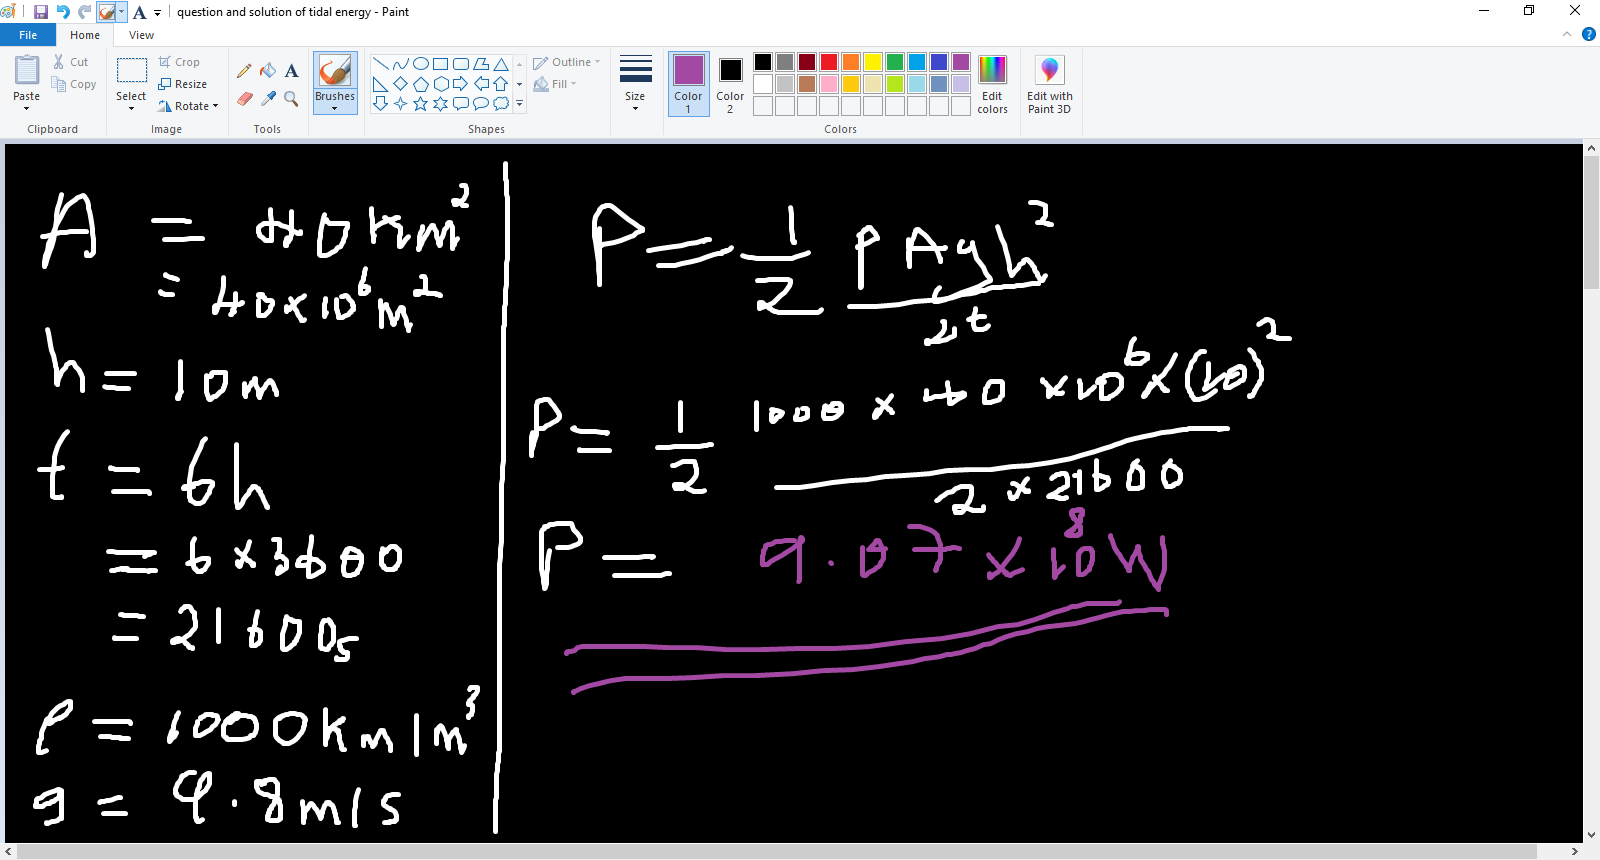 question and solution of tidal energy - Paint
File
Home
View
Paste
Cut
Copy
Clipboard
Select
Crop
Resize
Rotate
Image
Tools
Brushes
Shapes
Outline
Fill
Size
Color 1
Color 2
Colors
Edit colors
Edit with Paint 3D
A = 40 km²
= 40×10⁶ m²
h = 10m
t = 6h
= 6 × 3600
= 21600s
ρ = 1000 km/m³
g = 9.8m/s
P = 1/2 ρAgh²/2t
P = 1/2 1000 × 40 ×10⁶ × (10)²/2 × 21600
P = 9.07 × 10⁸ W